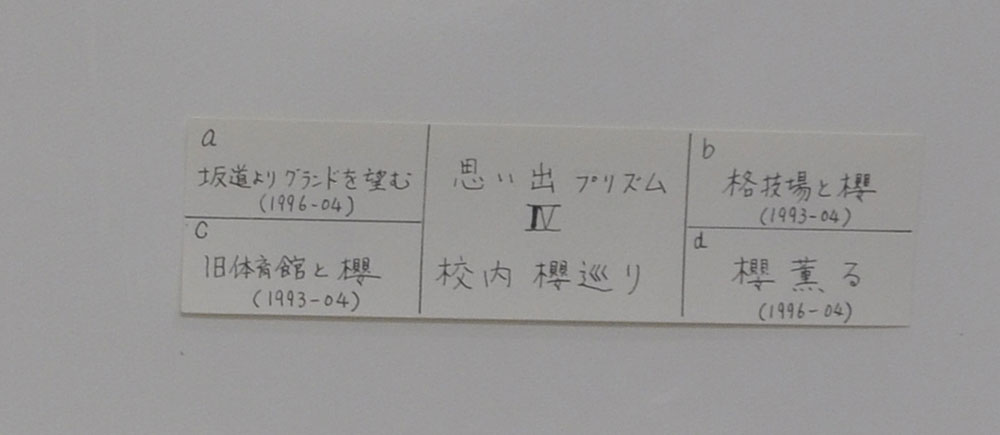 a
坂道よりグランドを望む
(1996-04)
c
旧体育館と櫻
(1993-04)
思い出プリズム
Ⅳ
校内櫻巡り
b
格技場と櫻
(1993-04)
d
櫻薫る
(1996-04)